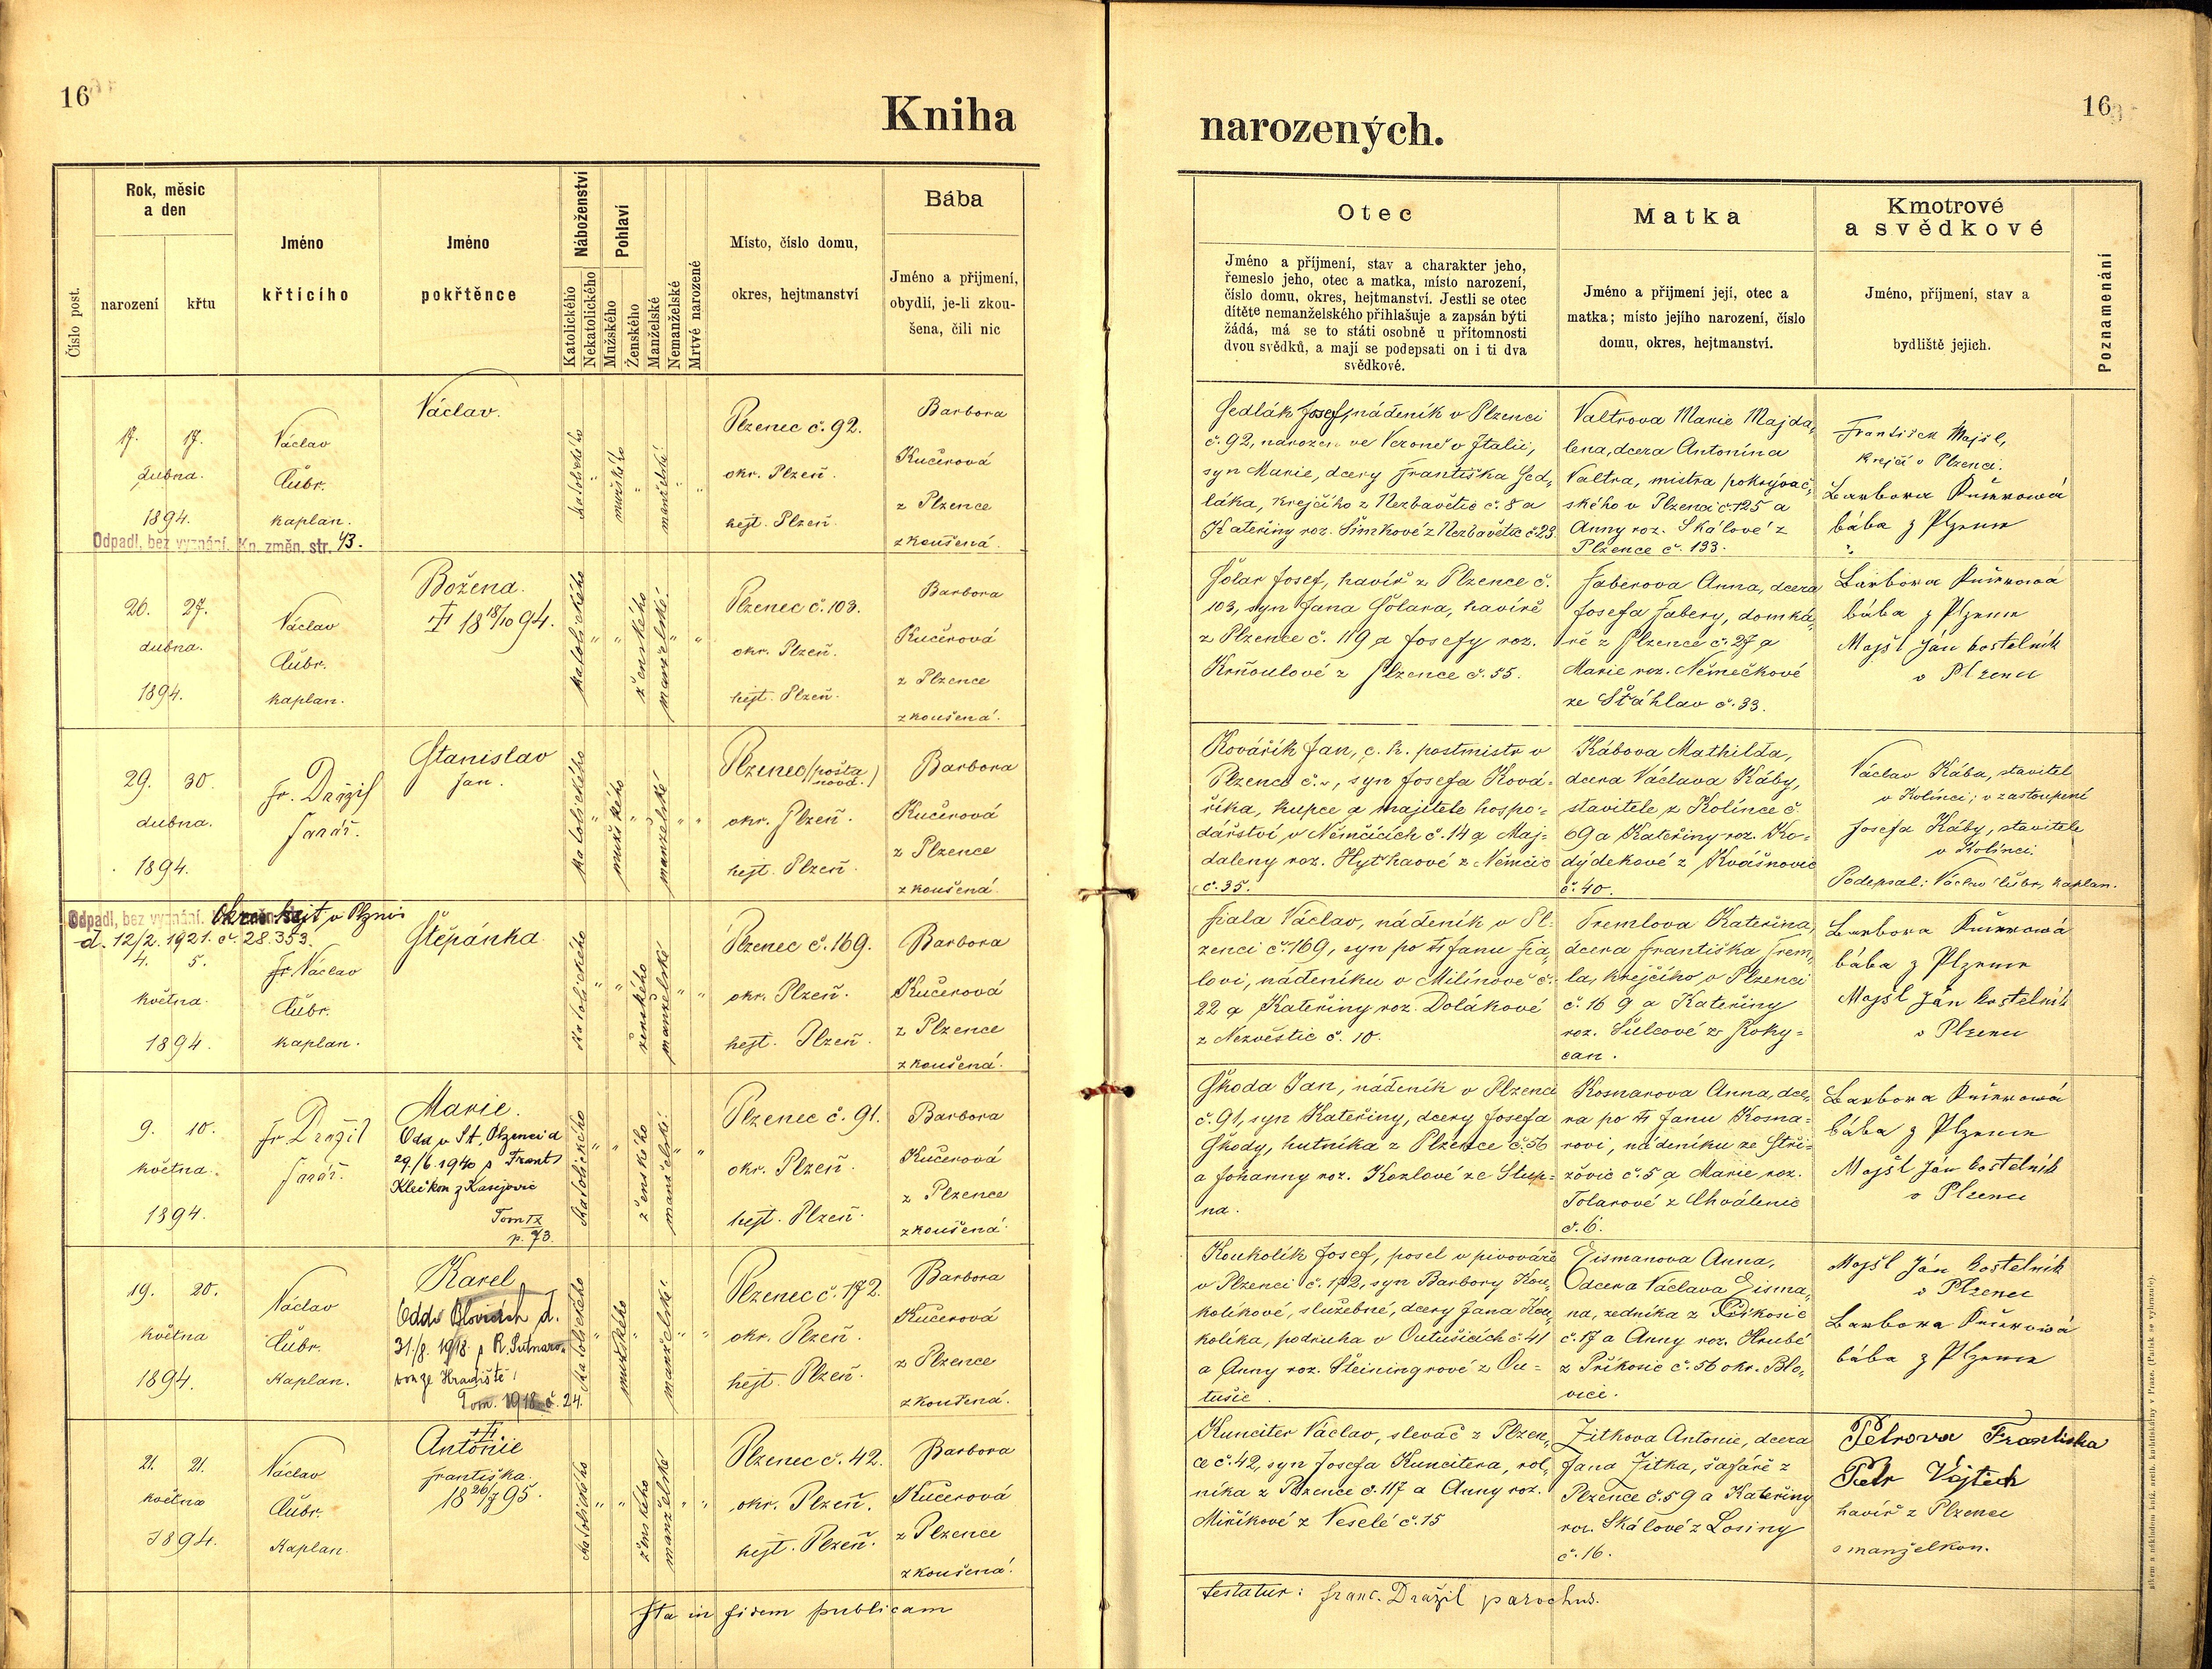 16
Kniha
Číslo post.
Rok, měsíc
a den
narození
křtu
Jméno
křtícího
Jméno
pokřtěnce
Náboženství
Katolického
Nekatolického
Pohlaví
Mužského
Ženského
Manželské
Nemanželské
Mrtvé narozené
Místo, číslo domu,
okres, hejtmanství
Bába
Jméno a přijmení,
obydlí, je-li zkou-
šena, čili nic
17. 17.
dubna.
1894.
Odpadl, bez vyznání. Kn. změn. str. 43.
Václav
Čubr.
kaplan.
Václav.
katolického
mužského
manželské
Plzenec č. 92.
okr. Plzeň.
hejt. Plzeň.
Barbora
Kučerová
z Plzence
zkoušená.
26. 27.
dubna.
1894.
Václav
Čubr.
kaplan.
Božena.
† 18 18/10 94.
katolického
ženského
manželské
Plzenec č. 103.
okr. Plzeň.
hejt. Plzeň.
Barbora
Kučerová
z Plzence
zkoušená.
29. 30.
dubna.
1894.
Fr. Dražil
farář.
Stanislav
Jan.
katolického
mužského
manželské
Plzenec (pošta
nová.)
okr. Plzeň.
hejt. Plzeň.
Barbora
Kučerová
z Plzence
zkoušená.
Odpadl, bez vyznání. hejt. v Plzni
d. 12/2. 1921. č. 28.353.
4. 5.
května.
1894.
Václav
Čubr.
kaplan.
Štěpánka.
katolického
ženského
manželské
Plzenec č. 169.
okr. Plzeň.
hejt. Plzeň.
Barbora
Kučerová
z Plzence
zkoušená.
9. 10.
května.
1894.
Fr. Dražil
farář.
Marie.
Odd. v St. Plzenci d.
29./6. 1940 s Frant.
z Kasejovic
Tom IX
p. 73.
katolického
ženského
manželské
Plzenec č. 91.
okr. Plzeň.
hejt. Plzeň.
Barbora
Kučerová
z Plzence
zkoušená.
19. 20.
května
1894.
Václav
Čubr.
Kaplan.
Karel
Odd. v Blovicích d.
31./8. 1918. s R. Sutnaro-
vou ze Hradiště
Tom. 1918 č. 24.
katolického
mužského
manželské
Plzenec č. 172.
okr. Plzeň.
hejt. Plzeň.
Barbora
Kučerová
z Plzence
zkoušená.
21. 21.
května
1894.
Václav
Čubr.
Kaplan.
†
Antonie
Františka.
18 26/7 95.
katolického
ženského
manželské
Plzenec č. 42.
okr. Plzeň.
hejt. Plzeň.
Barbora
Kučerová
z Plzence
zkoušená.
Ita in fidem publicam
16
narozených.
Otec
Jméno a příjmení, stav a charakter jeho,
řemeslo jeho, otec a matka, místo narození,
číslo domu, okres, hejtmanství. Jestli se otec
dítěte nemanželského přihlašuje a zapsán býti
žádá, má se to státi osobně u přítomnosti
dvou svědků, a mají se podepsati on i ti dva
svědkové.
Matka
Jméno a přijmení její, otec a
matka; místo jejího narození, číslo
domu, okres, hejtmanství.
Kmotrové
a svědkové
Jméno, příjmení, stav a
bydliště jejich.
Poznamenání
Sedlák Josef, nádeník v Plzenci
č. 92, narozen ve Veroně v Italii,
syn Marie, dcery Františka Sed-
láka, krejčího z Nezbavětic č. 8 a
Kateřiny roz. Šimkové z Nezbavětic č. 23.
Valtrova Marie Majda-
lena, dcera Antonína
Valtra, mistra pokrývač-
ského v Plzenci č. 125 a
Anny roz. Skálové z
Plzence č. 133.
František Majšl,
krejčí v Plzenci.
Barbora Kučerová
bába z Plzence
Šolar Josef, havíř z Plzence č.
103, syn Jana Šolara, havíře
z Plzence č. 119 a Josefy roz.
Krňoulové z Plzence č. 55.
Faberova Anna, dcera
Josefa Fabery, domká-
ře z Plzence č. 27 a
Marie roz. Němečkové
ze Šťáhlav č. 33.
Barbora Kučerová
bába z Plzence
Majšl Ján kostelník
v Plzenci
Kovářík Jan, c. k. postmistr v
Plzenci č. „, syn Josefa Ková-
říka, kupce a majitele hospo-
dářství v Němčicích č. 14 a Maj-
daleny roz. z Němčic
č. 35.
Kábova Mathilda,
dcera Václava Káby,
stavitele z Kolínce č.
69 a Kateřiny roz. Ko-
dýdekové z Kvášňovic
č. 40.
Václav Kába, stavitel
v Kolínci; v zastoupení
Josefa Káby, stavitele
v Kolínci.
Podepsal: Václav Čubr, kaplan.
Fiala Václav, nádeník v Pl-
zenci č. 169, syn po † Janu Fia-
lovi, nádeníku v Milínově č.
22 a Kateřiny roz. Dolákové
z Nezvěstic č. 10.
Tremlova Kateřina,
dcera Františka Trem-
la, krejčího v Plzenci
č. 169 a Kateřiny
roz. Šulcové z Roky-
can.
Barbora Kučerová
bába z Plzence
Majšl Ján kostelník
v Plzenci
Škoda Jan, nádeník v Plzenci
č. 91, syn Kateřiny, dcery Josefa
Škody, hutníka z Plzence č. 56
a Johanny roz. Kozlové ze Stup-
na.
Kosnarova Anna, dce-
ra po † Janu Kosna-
rovi, nádeníku ze Stří-
žovic č. 5 a Marie roz.
Tolarové z Chválenic
č. 6.
Barbora Kučerová
bába z Plzence
Majšl Ján kostelník
v Plzenci
Koukolík Josef, posel v pivováře
v Plzenci č. 172, syn Barbory Kou-
kolíkové, služebné, dcery Jana Kou-
kolíka, podruha v Outušicích č. 41
a Anny roz. Šteiningrové z Ou-
tušic.
Eismanova Anna,
dcera Václava Eisma-
na, zedníka z Příkosic
č. 17 a Anny roz. Hrubé
z Příkosic č. 56 okr. Blo-
vice.
Majšl Ján kostelník
v Plzenci
Barbora Kučerová
bába z Plzence
Kunciter Václav, slevač z Plzen-
ce č. 42, syn Josefa Kuncitera, rol-
níka z Plzence č. 117 a Anny roz.
Miříkové z Veselé č. 15
Zitkova Antonie, dcera
Jana Zitka, šafáře z
Plzence č. 59 a Kateřiny
roz. Skálové z Losiny
č. 16.
Petrova Františka
Petr Vojtěch
havíř z Plzence
s manželkou.
testatur: Franc. Dražil parochus.